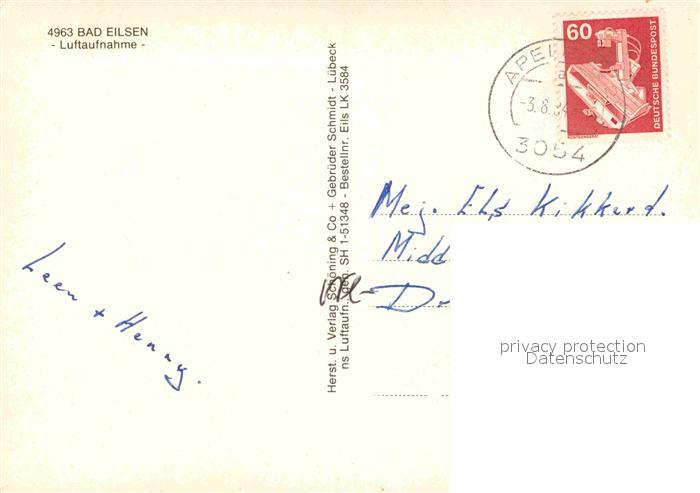 4963 BAD EILSEN
- Luftaufnahme -
60
DEUTSCHE BUNDESPOST
-3.8.84
3054
Herst. u. Verlag Schöning & Co + Gebrüder Schmidt - Lübeck
ns Luftaufn. gen. SH 1-51348 - Bestellnr. Eils LK 3584
Mej. Els Kikkerd.
Leen + Henny.
privacy protection
Datenschutz